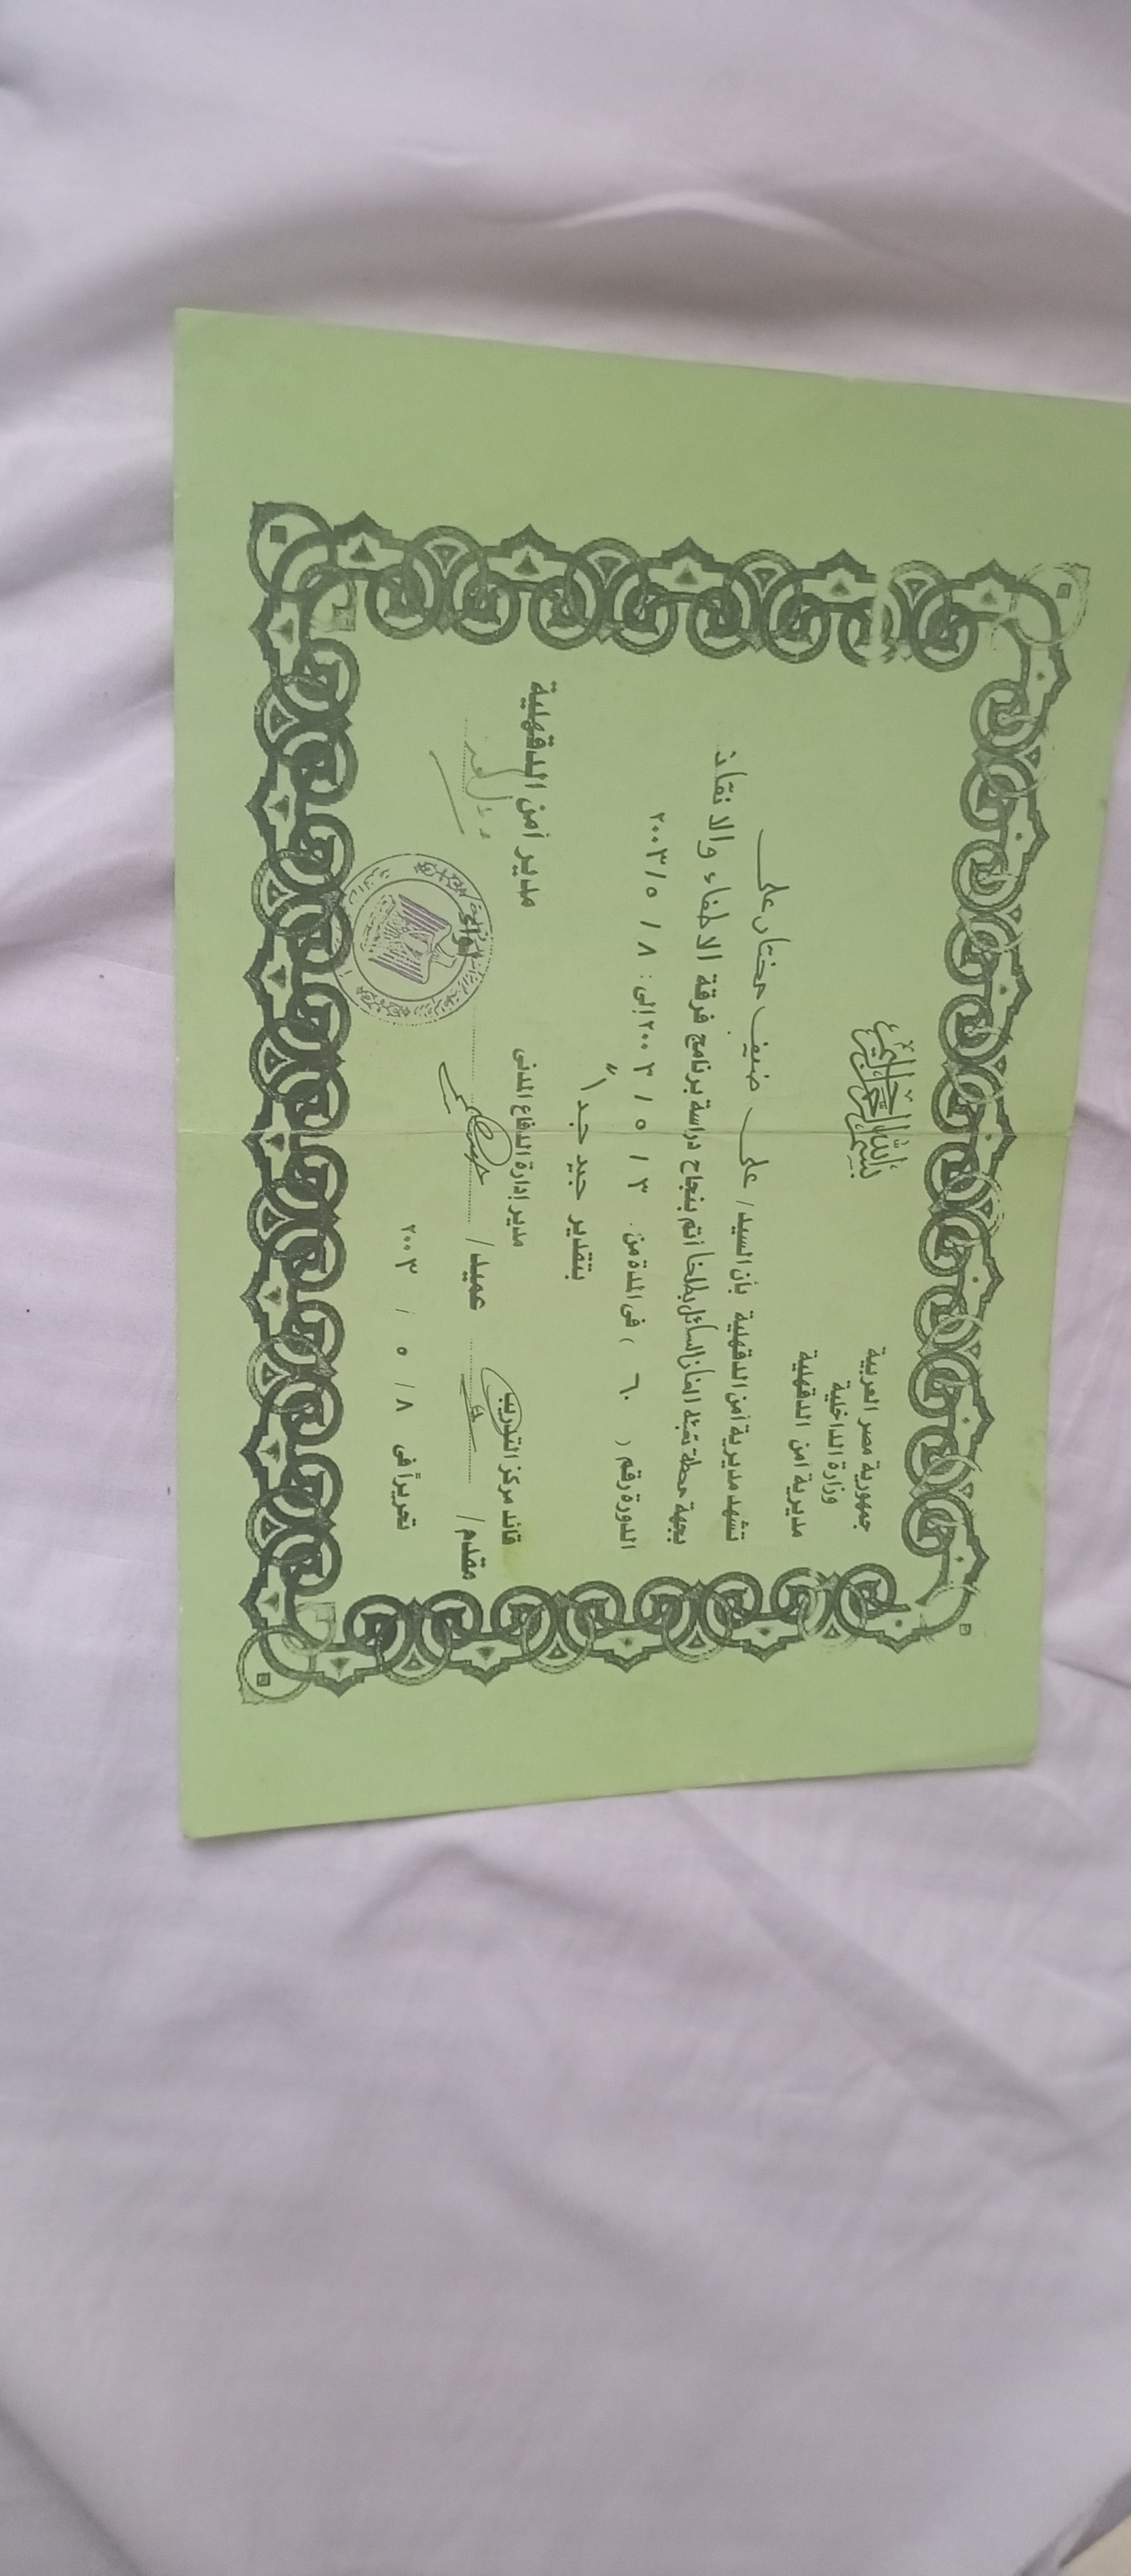 بسم الله الرحمن الرحيم
جمهورية مصر العربية
وزارة الداخلية
مديرية أمن الدقهلية
تشهد مديرية أمن الدقهلية بأن السيد / على ضيف مختار على
بجهة محطة تعبئة الغاز السائل بطلخا أتم بنجاح دراسة برنامج فرقة الاطفاء والانقاذ
الدورة رقم ( ٦٠ ) فى المدة من ٣ / ٥ / ٢٠٠٣ إلى : ٨ / ٥ / ٢٠٠٣
بتقدير جيد جدا "
قائد مركز التدريب مدير إدارة الدفاع المدنى مدير أمن الدقهلية
مقدم / عميد / لواء
تحريراً فى ٨ / ٥ / ٢٠٠٣